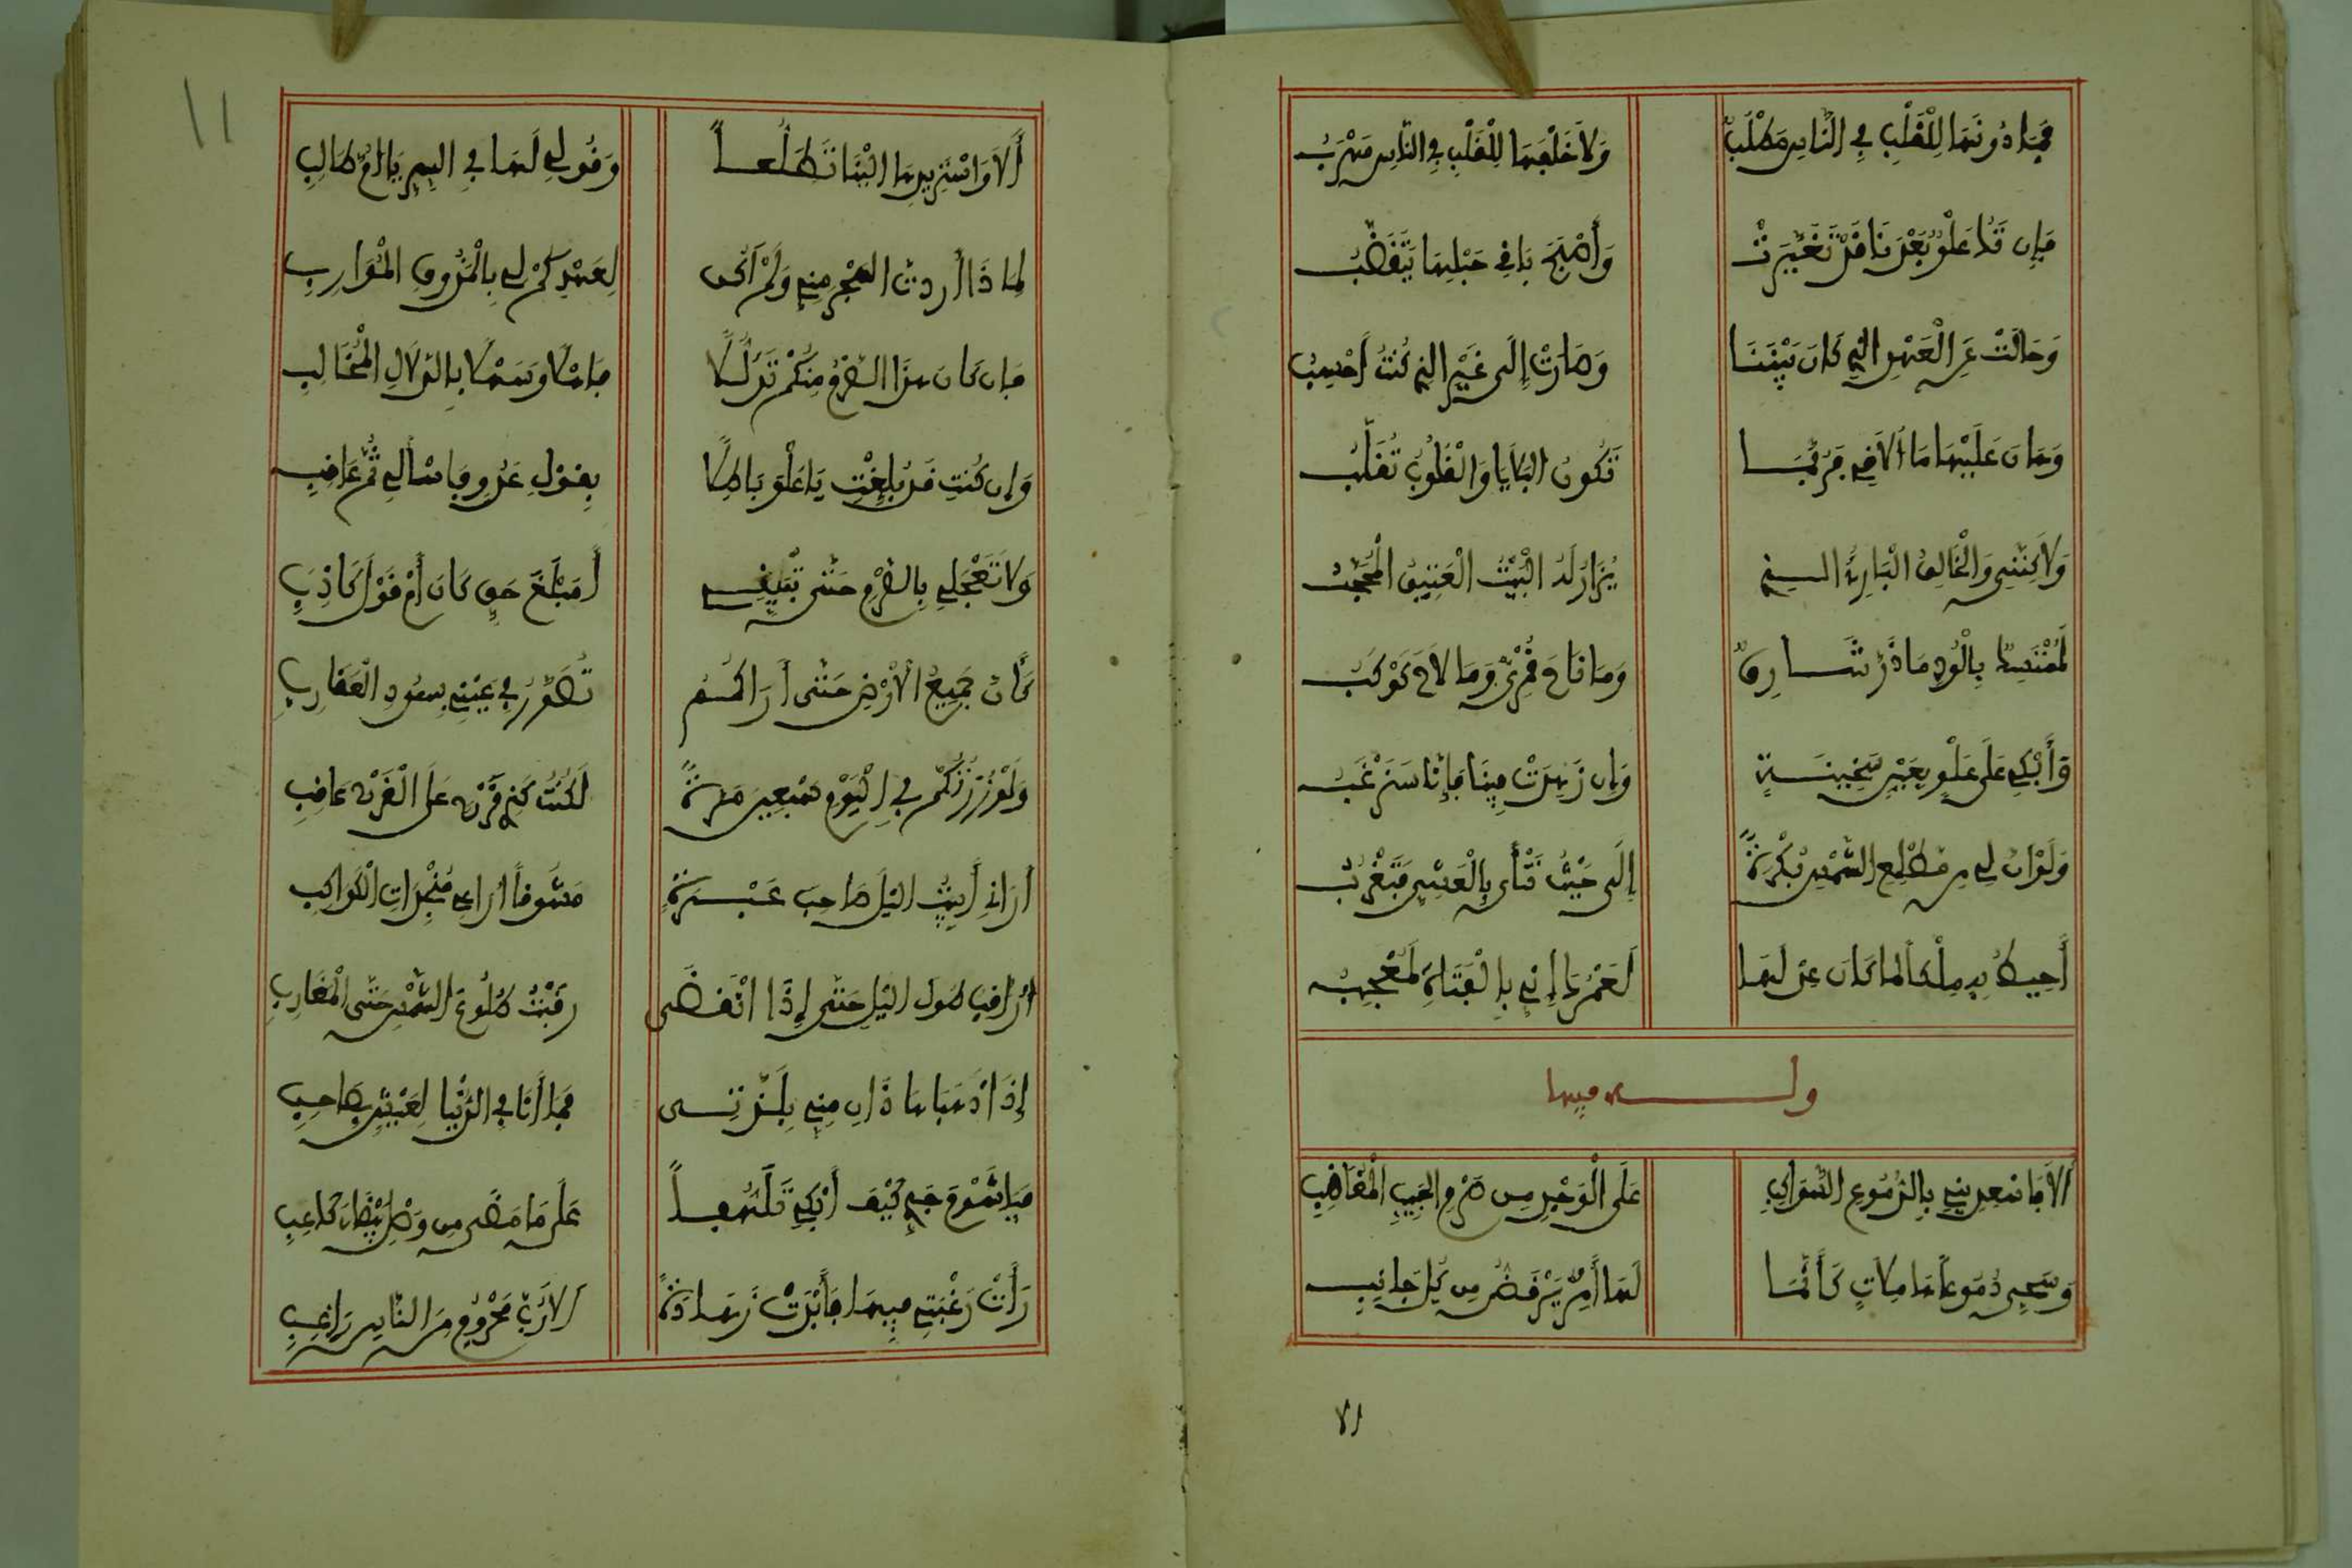 فَمَا دُونَهَا لِلْقَلْبِ فِي النَّاسِ مَطْلَبٌ وَلاَ خَلْفَهَا لِلْقَلْبِ فِي النَّاسِ مَهْرَبُ
فَإِن تَكُ عَلْوُ بَعْدَنَا قَدْ تَغَيَّرَتْ وَأَصْبَحَ بَاقِي حَبْلِهَا يَتَقَضَّبُ
وَحَالَتْ عَنِ الْعَهْدِ الذِي كَانَ بَيْنَنَا وَصَارَتْ إِلَى غَيْرِ الذِي كُنْتُ أَحْسِبُ
وَهَانَ عَلَيْهَا مَا أُلاَقِي فَرُبَّمَا تَكُونُ البَلاَيَا وَالْقُلُوبُ تُقَلَّبُ
وَلاَكِنَّنِي وَالْخَالِقِ الْبَارِئِ الذِي يُزَارُ لَهُ الْبَيْتُ الْعَتِيقُ الْمُحَجَّبُ
لَمُمْتَسِكٌ بِالْوُدِّ مَا ذَرَّ شَارِقٌ وَمَا نَاحَ قُمْرِيٌّ وَمَا لاَحَ كَوْكَبُ
وَأَبْكِي عَلَى عَلْوٍ بِعَيْنٍ سَخِينَةٍ وَإِن زَهِدَتْ فِينَا فَإِنَّا سَنَرْغَبُ
وَلَوْ أَنَّ لِي مِن مَطْلِعِ الشَّمْسِ بُكْرَةً إِلَى حَيْثُ تَنْأَى بِالْعَشِيِّ فَتَغْرُبُ
أُحِيطُ بِهِ مِلْكاً لَمَا كَانَ عِدْلَهَا لَعَمْرُكَ إِنِّي بِالْفَتَاةِ لَمُعْجَبُ
وله فيها
أَلاَ فَاسْعِدِينِي بِالدُّمُوعِ السَّوَاكِبِ عَلَى الْوَجْدِ مِن صَرْمِ الحَبِيبِ الْمُغَاضِبِ
وَسُحِّي دُمُوعاً هَامِلاَتٍ كَأَنَّمَا لَهَا أَمِرٌ يَرْفَضُّ مِن كُلِّ جَانِبِ
أَلاَ وَاسْتَزِيرِيهَا الَيْنَا تَطَلُّعاً وَقُولِي لَهَا فِي السِّرِّ يَا أُمَّ طَالِبِ
لِمَا ذَا أَرَدتِ الهَجْرَ مِنِّي وَلَمْ أَكُن لِعَهْدِكُمْ لِي بِالْمَذُوقِ الْمُوَارِبِ
فَإِن كَانَ هَذَا الصَّرْمُ مِنْكُمْ تَدَلُّلاً فَأَهْلاً وَسَهْلاً بِالدَّلاَلِ الْمُخَالِبِ
وَإِن كُنتِ قَدْ بُلِّغْتِ يَا عَلْوَ بَاطِلاً بِقَوْلِ عَدُوٍّ فَاسْأَلِي ثُمَّ عَاقِبِ
وَلاَ تَعْجَلِي بِالصَّرْمِ حَتَّى تَبَيَّنِي أَمَبْلَغَ حَقٍّ كَانَ أَمْ قَوْلَ كَاذِبِ
كَأَنَّ جَمِيعَ الأَرْضِ حَتَّى أَرَاكُمُ تُصَوَّرُ فِي عَيْنِي بِسُودِ الْعَقَارِبِ
وَلَوْ زُرْتُكُمْ فِي الْيَوْمِ سَبْعِينَ مَرَّةً لَكُنْتُ كَذِي فَرْخٍ عَلَى الْفَرْخِ عَاقِبِ
أَرَانِي أَبِيتُ اليْلَ صَاحِبَ عَبْرَةٍ مَشُوقاً أُرَاعِي مُنْجِدَاتِ الْكَوَاكِبِ
أُرَاقِبُ طُولَ اليْلِ حَتَّى إِذَا انْقَضَى رَقَبْتُ طُلُوعَ الشَّمْسِ حَتَّى الْمَغَارِبِ
إِذَا ذَهَبَا هَاذَانِ مِنِّي بِلَذَّتِي فَمَا أَنَا فِي الدُّنْيَا لِعَيْشٍ بِصَاحِبِ
فَيَا شَوْقَ جِدِّي كَيْفَ أَبْكِي تَلَهُّفاً عَلَى مَا مَضَى مِن وَصْلِ بَيْضَاءَ كَاعِبِ
رَأَتْ رَغْبَتِي فِيهَا فَأَبْدَتْ زَهَادَةً أَلاَ رُبَّ مَحْرُومٍ مِنَ النَّاسِ رَاغِبِ